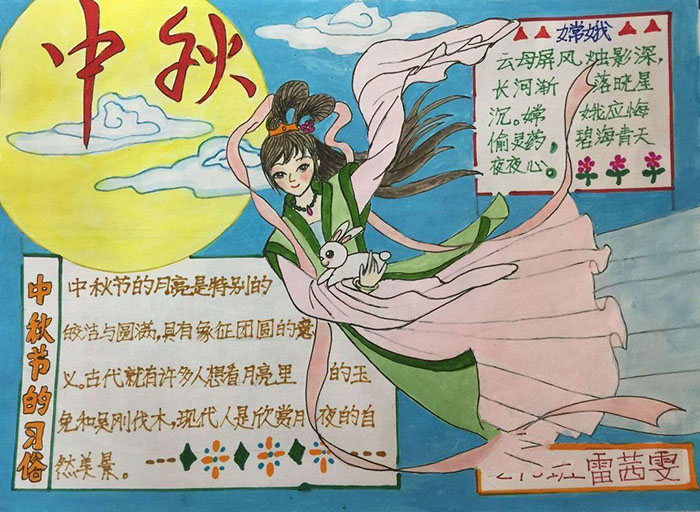 中秋
嫦娥
云母屏风烛影深,
长河渐落晓星
沉。嫦娥应悔
偷灵药,碧海青天
夜夜心。
中秋节的习俗
中秋节的月亮是特别的
皎洁与圆满,具有象征团圆的意
义。古代就有许多人想看月亮里的玉
兔和吴刚伐木,现代人是欣赏月夜的自
然美景。
班 雷茜雯